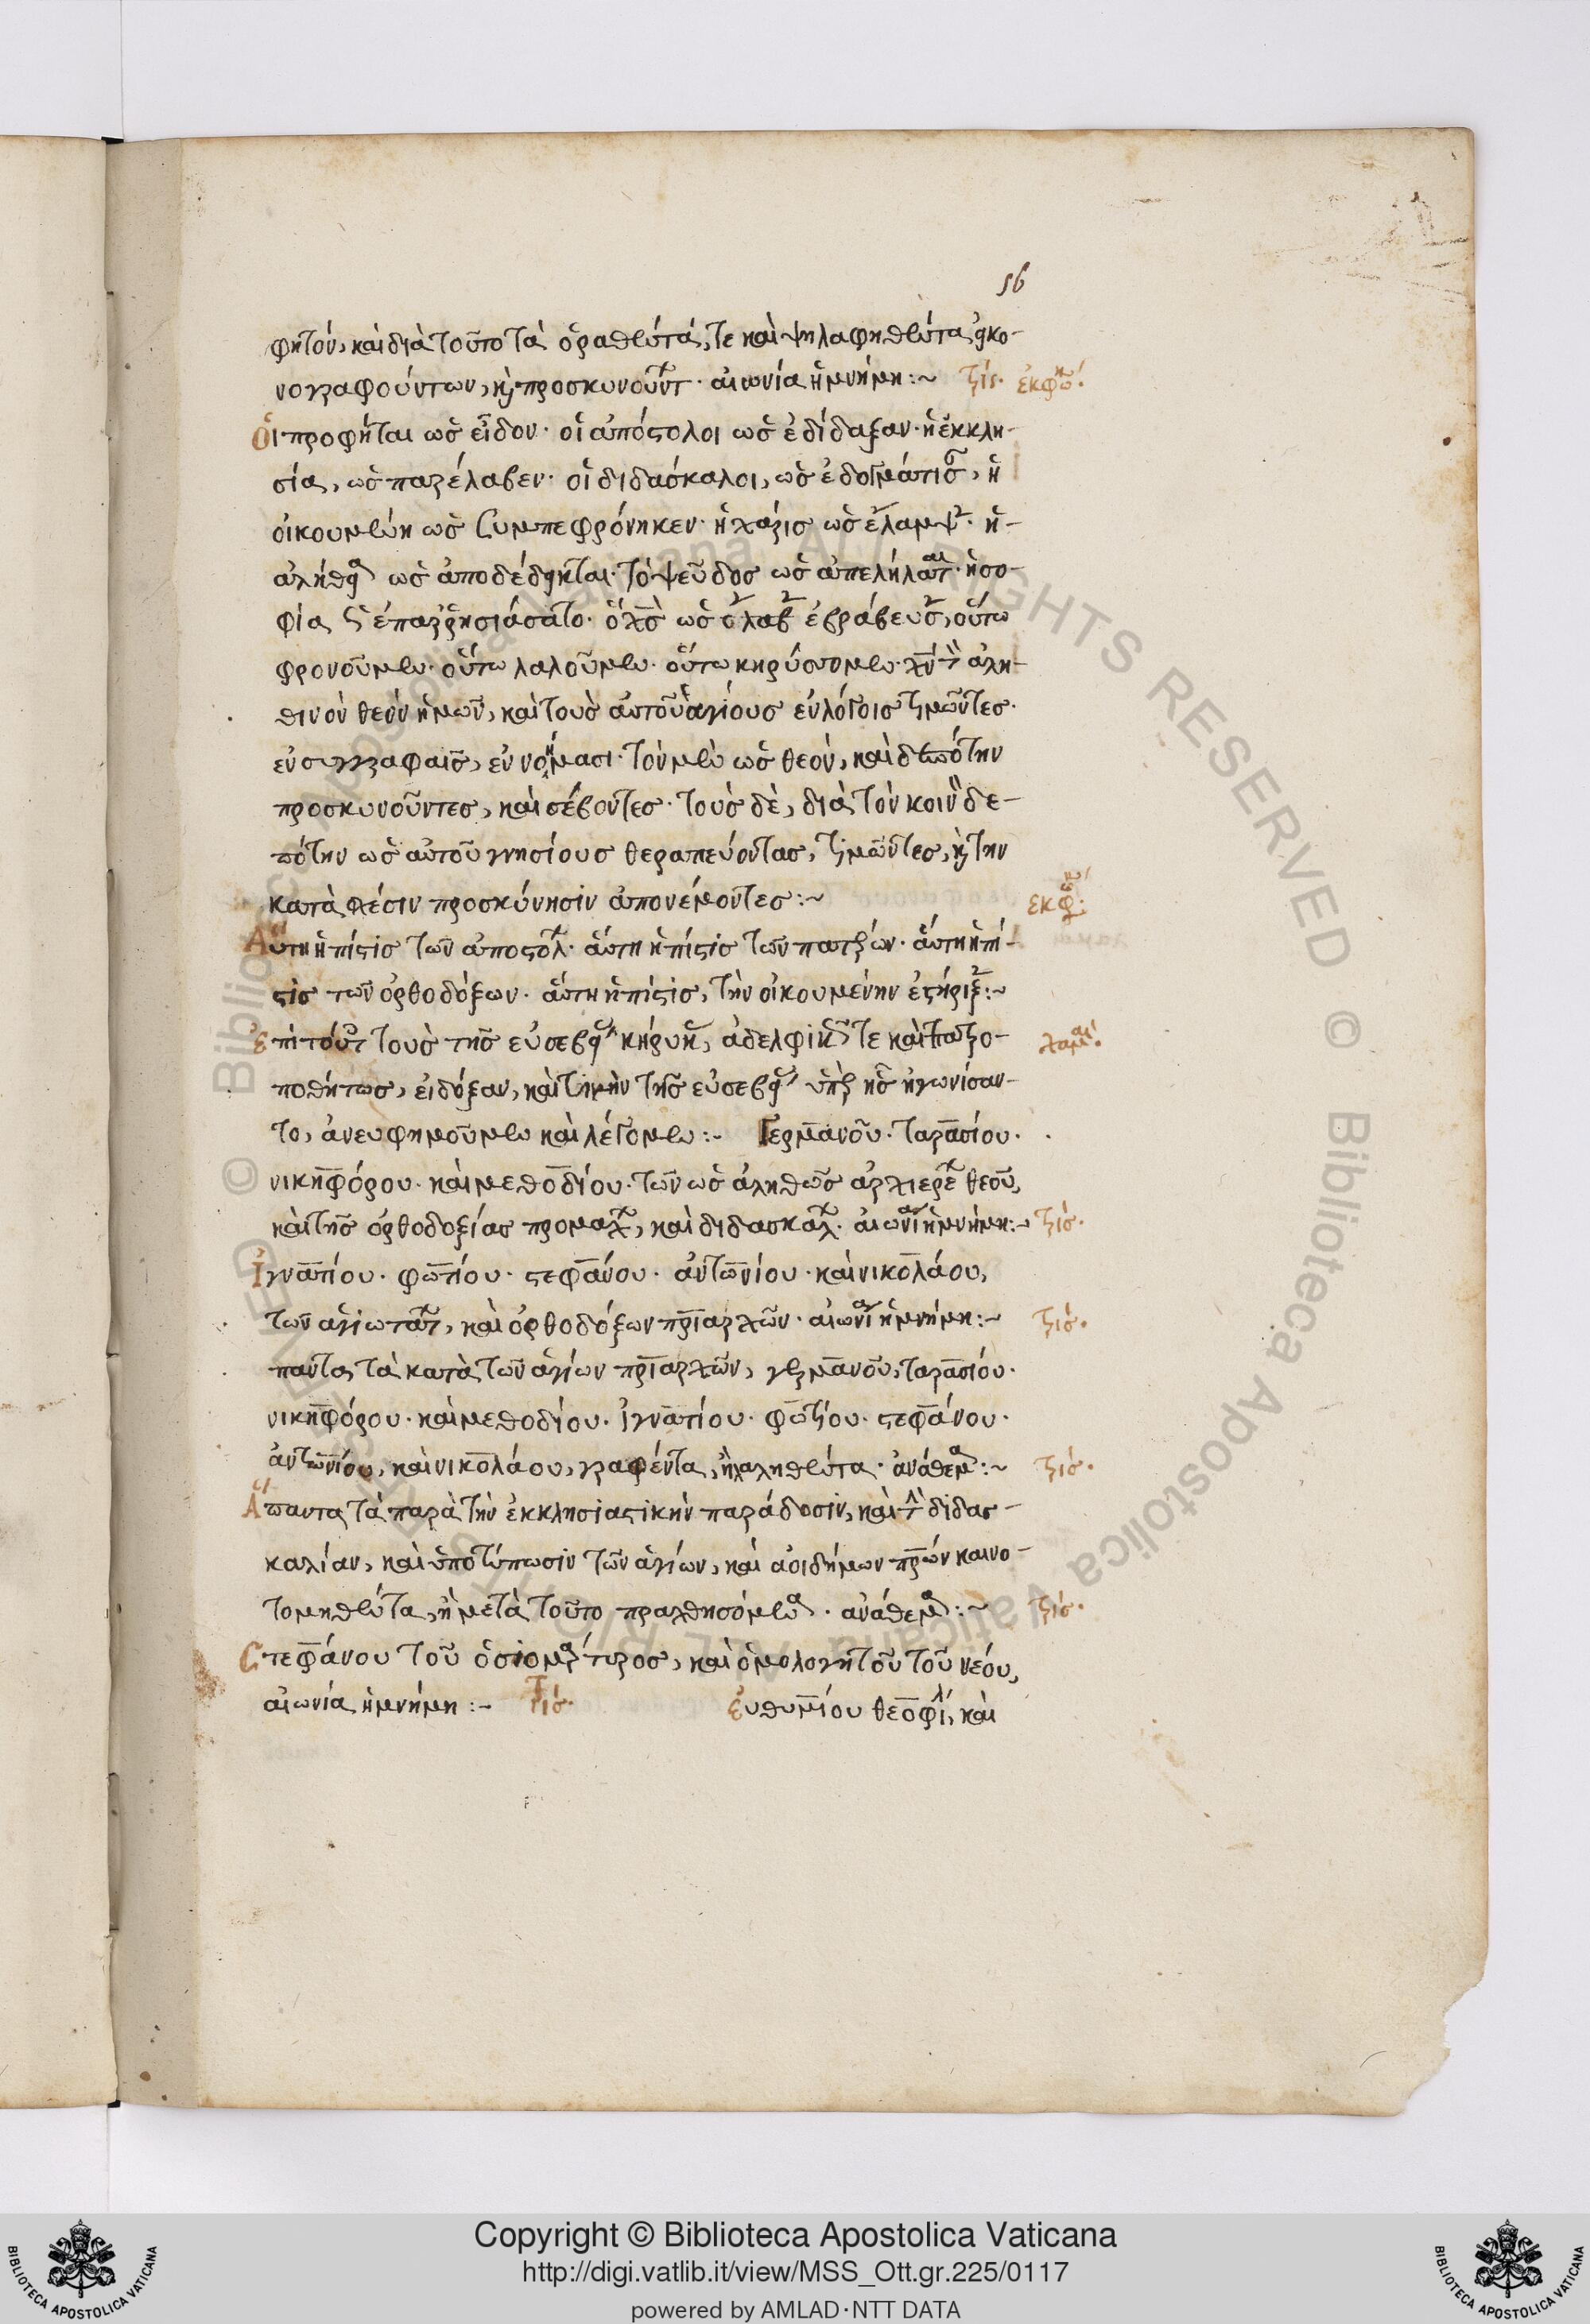 56
φητόν, καὶ διὰ τοῦτο τὰ ὁραθέντά, τε καὶ ψηλαφηθέντα εἰκο-
νογραφούντων, καὶ προσκυνούντ· αἰωνία ἡ μνήμη:~ τρίς· ἐκφω·
Οἱ προφῆται ὡς εἶδον· οἱ ἀπόστολοι ὡς ἐδίδαξαν· ἡ ἐκκλη-
σία, ὡς παρέλαβεν· οἱ διδάσκαλοι, ὡς ἐδογμάτισ, ἡ
οἰκουμένη ὡς συμπεφρόνηκεν· ἡ χάρις ὡς ἔλαμψ· ἡ-
ἀλήθεια ὡς ἀποδέδεικται· τὸ ψεῦδος ὡς ἀπελήλατ· ἡ σο-
φία ὡς ἐπαρρησιάσατο· ὁ χς ὡς ἐβράβευσ, οὕτω
φρονοῦμεν· οὕτω λαλοῦμεν· οὕτω κηρύσσομεν· χν τὸν ἀλη-
θινὸν θεὸν ἡμῶν, καὶ τοὺς αὐτοῦ ἁγίους ἐν λόγοις τιμῶντες·
ἐν συγγραφαῖς, ἐν νοήμασι· τὸν μὲν ὡς θεὸν, καὶ δεσπότην
προσκυνοῦντες, καὶ σέβοντες· τοὺς δὲ, διὰ τὸν κοινὸν δε-
σπότην ὡς αὐτοῦ γνησίους θεράπεύοντας, τιμῶντες, καὶ τὴν
κατὰ σχέσιν προσκύνησιν ἀπονέμοντες:~ ἐκφ·
Αὕτη ἡ πίστις τῶν ἀποστόλ· αὕτη ἡ πίστις τῶν πατέρων· αὕτη ἡ πί-
στις τῶν ὀρθοδόξων· αὕτη ἡ πίστις, τὴν οἰκουμένην ἐστήριξ:~
Ἐπὶ τούτ τοὺς τῆς εὐσεβείας κήρυκ, ἀδελφικῶς τε καὶ πατρο-
ποθήτως, εἰς δόξαν, καὶ τιμὴν τῆς εὐσεβείας ὑπὲρ ἧς ἠγωνίσαν-
το, ἀνευφημοῦμεν καὶ λέγομεν:- Γερμανοῦ· ταρασίου·
νικηφόρου· καὶ μεθοδίου· τῶν ὡς ἀληθῶς ἀρχιερέ θεοῦ,
καὶ τῆς ὀρθοδοξίας προμάχ, καὶ διδασκάλ· αἰωνία ἡ μνήμη:- τρίς·
Ἰγνατίου· φωτίου· στεφάνου· ἀντωνίου· καὶ νικολάου,
τῶν ἁγιωτάτ, καὶ ὀρθοδόξων πριαρχῶν· αἰωνία ἡ μνήμη:- τρίς·
παντα τὰ κατὰ τῶν ἁγίων πριαρχῶν, γερμανοῦ, ταρασίου·
νικηφόρου· καὶ μεθοδίου· ἰγνατίου· φωτίου· στεφάνου·
ἀντωνίου, καὶ νικολάου, γραφέντα, ἢ λαληθέντα· ἀνάθεμα:~ τρίς·
Ἅπαντα τὰ παρὰ τὴν ἐκκλησιαστικὴν παράδοσιν, καὶ τὴν διδασ-
καλίαν, καὶ ὑποτύπωσιν τῶν ἁγίων, καὶ ἀοιδήμων πρων καινο-
τομηθέντα, ἢ μετὰ τοῦτο πραχθησόμενα· ἀνάθεμα:~ τρίς·
Στεφάνου τοῦ ὁσιομάρτυρος, καὶ ὁμολογητοῦ τοῦ νέου,
αἰωνία ἡ μνήμη:- τρίς· εὐθυμίου θεοφίλ, καὶ
Copyright © Biblioteca Apostolica Vaticana
http://digi.vatlib.it/view/MSS_Ott.gr.225/0117
powered by AMLAD·NTT DATA